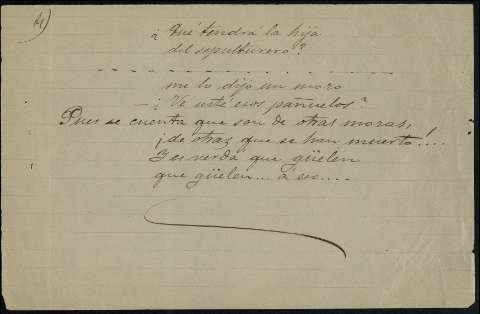 4)
¿Qué tendrá la hija
del sepulturero?
me lo dijo un mozo
— ¿Ve usté esos pañuelos?
Pues se cuenta que son de otras mozas,
¡de otras que se han muerto!...
Y es verdá que güelen
que güelen... á eso....